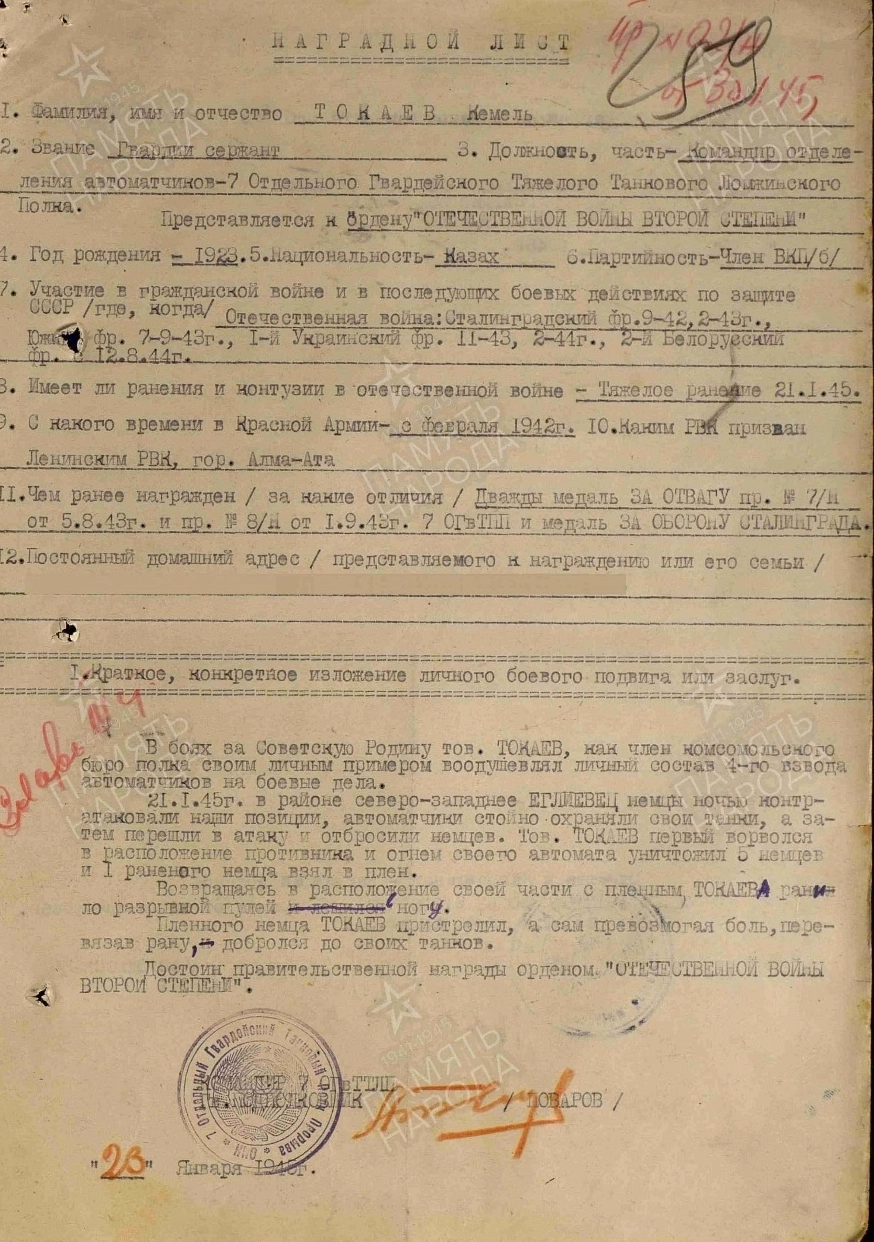 НАГРАДНОЙ ЛИСТ
259
1. Фамилия, имя и отчество ТОКАЕВ Кемель
2. Звание Гвардии сержант 3. Должность, часть- Командир отделе-
ления автоматчиков-7 Отдельного Гвардейского Тяжелого Танкового Ломжинского
Полка.
Представляется к Ордену"ОТЕЧЕСТВЕННОЙ ВОЙНЫ ВТОРОЙ СТЕПЕНИ"
4. Год рождения - 1923.5.Национальность- Казах 6.Партийность-Член ВКП/б/
7. Участие в гражданской войне и в последующих боевых действиях по защите
СССР /где, когда/ Отечественная война:Сталинградский фр.9-42,2-43г.,
фр. 7-9-43г., I-й Украинский фр. II-43, 2-44г., 2-й Белорусский
фр. 12.8.44г.
8. Имеет ли ранения и контузии в отечественной войне - Тяжелое ранение 21.I.45.
9. С какого времени в Красной Армии- с февраля 1942г. 10.Каким РВК призван
Ленинским РВК, гор. Алма-Ата
II.Чем ранее награжден / за какие отличия / Дважды медаль ЗА ОТВАГУ пр. № 7/Н
от 5.8.43г. и пр. № 8/Н от I.9.43г. 7 ОГвТПП и медаль ЗА ОБОРОНУ СТАЛИНГРАДА.
12.Постоянный домашний адрес / представляемого к награждению или его семьи /
I.Краткое, конкретное изложение личного боевого подвига или заслуг.
В боях за Советскую Родину тов. ТОКАЕВ, как член комсомольского
бюро полка своим личным примером воодушевлял личный состав 4-го взвода
автоматчиков на боевые дела.
21.I.45г. в районе северо-западнее ЕГЛИЕВЕЦ немцы ночью контр-
атаковали наши позиции, автоматчики стойно охраняли свои танки, а за-
тем перешли в атаку и отбросили немцев. Тов. ТОКАЕВ первый ворвался
в расположение противника и огнем своего автомата уничтожил 5 немцев
и I раненого немца взял в плен.
Возвращаясь в расположение своей части с пленным, ТОКАЕВА рани-
ло разрывной пулей в ногу.
Пленного немца ТОКАЕВ пристрелил, а сам превозмогая боль,пере-
вязав рану, добролся до своих танков.
Достоин правительственной награды орденом "ОТЕЧЕСТВЕННОЙ ВОЙНЫ
ВТОРОЙ СТЕПЕНИ".
КОМАНДИР 7 ОГвТТП
/ ПОВАРОВ /
7 Отдельный Гвардейский Танковый Полк Прорыва
"23" Января 1945г.
ПАМЯТЬ НАРОДА